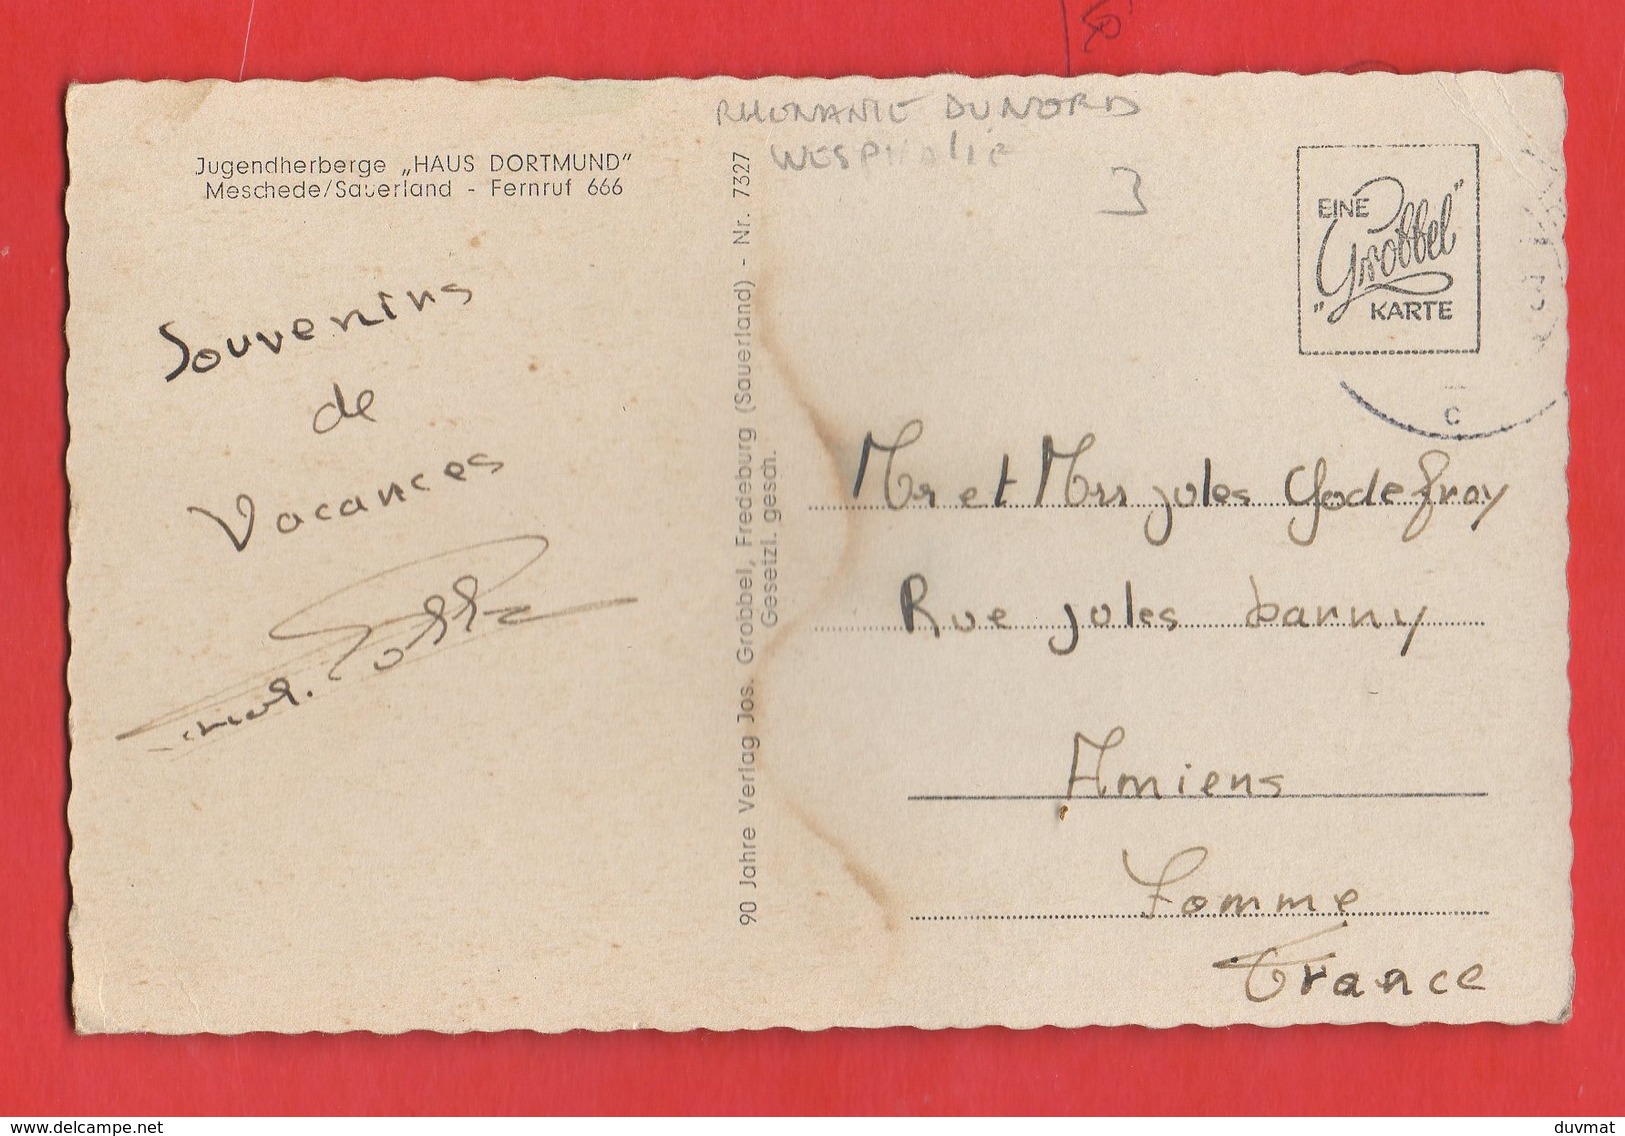 RHENANIE DU NORD
WESPHALIE
3
Jugendherberge „HAUS DORTMUND"
Meschede/Sauerland - Fernruf 666
Souvenirs
de
Vacances
90 Jahre Verlag Jos. Grobbel, Fredeburg (Sauerland) - Nr. 7327
Gesetzl. gesch.
EINE
"Grobbel"
KARTE
c
Mr et Mrs jules Godefroy
Rue jules barny
Amiens
Somme
France
www.delcampe.net
duvmat